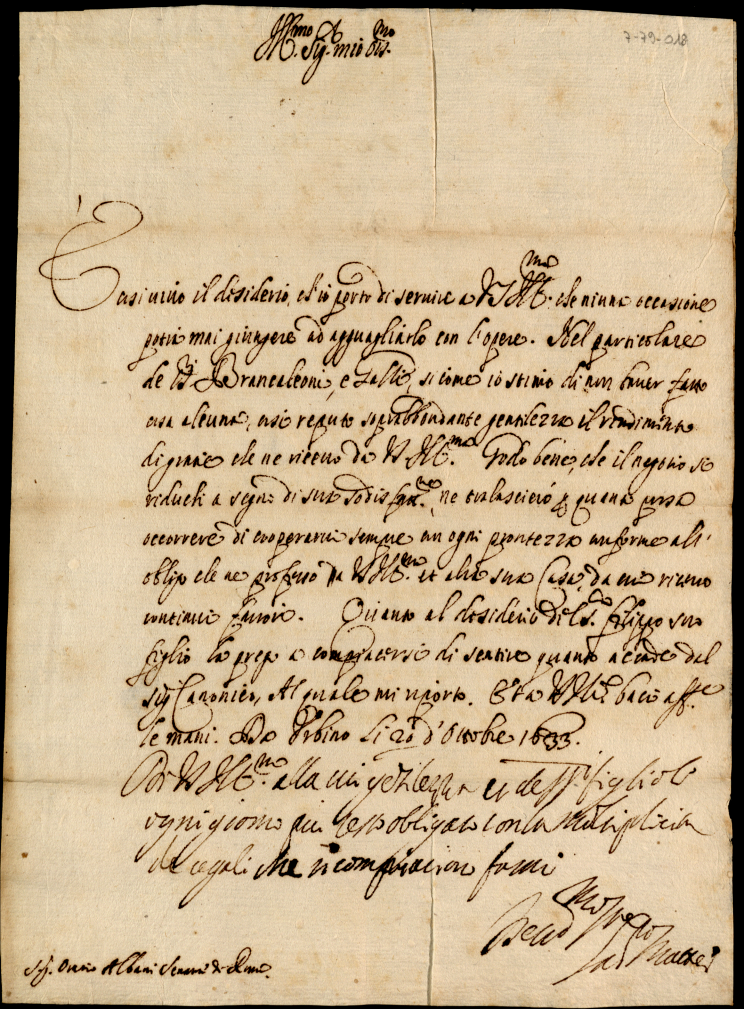 7-79-018
Ill.mo Sig. mio Oss.mo
È cosi vivo il desiderio, ch'io porto di servire a V.S. Ill.ma che niuna occasione
potrà mai giungere ad agguagliarlo con l'opere. Nel particolare
de Brancaleoni, e Galli, si come io stimo di non haver fatto
cosa alcuna, cosi reputo soprabbondante gentilezza il rendimento
di gratie che ne ricevo da V.S. Ill.ma. Godo bene, che il negotio si
riduchi a segno di sua sodisfatt.ne, ne tralasciero p quanto possa
occorrere di cooperarvi sempre con ogni prontezza conforme all'
obligo che ne professo a V.S. Ill.ma et alla sua Casa, da cui ricevo
continui favori. Quanto al desiderio del S. Filippo suo
figlio la prego a compiacersi di sentire quanto accade dal
Sig. Canonico, Al quale mi riporto. Et a V.S. Ill. bacio aff.e
le mani. Da Urbino li 20 d'Ottobre 1633.
Di V.S. Ill.ma alla cui getilezza et de figlioli
ogni giorno piu resto obligato con la multiplicita
de regali che si compiaciono farmi
Sig. Oratio Albani Senatore di Roma.